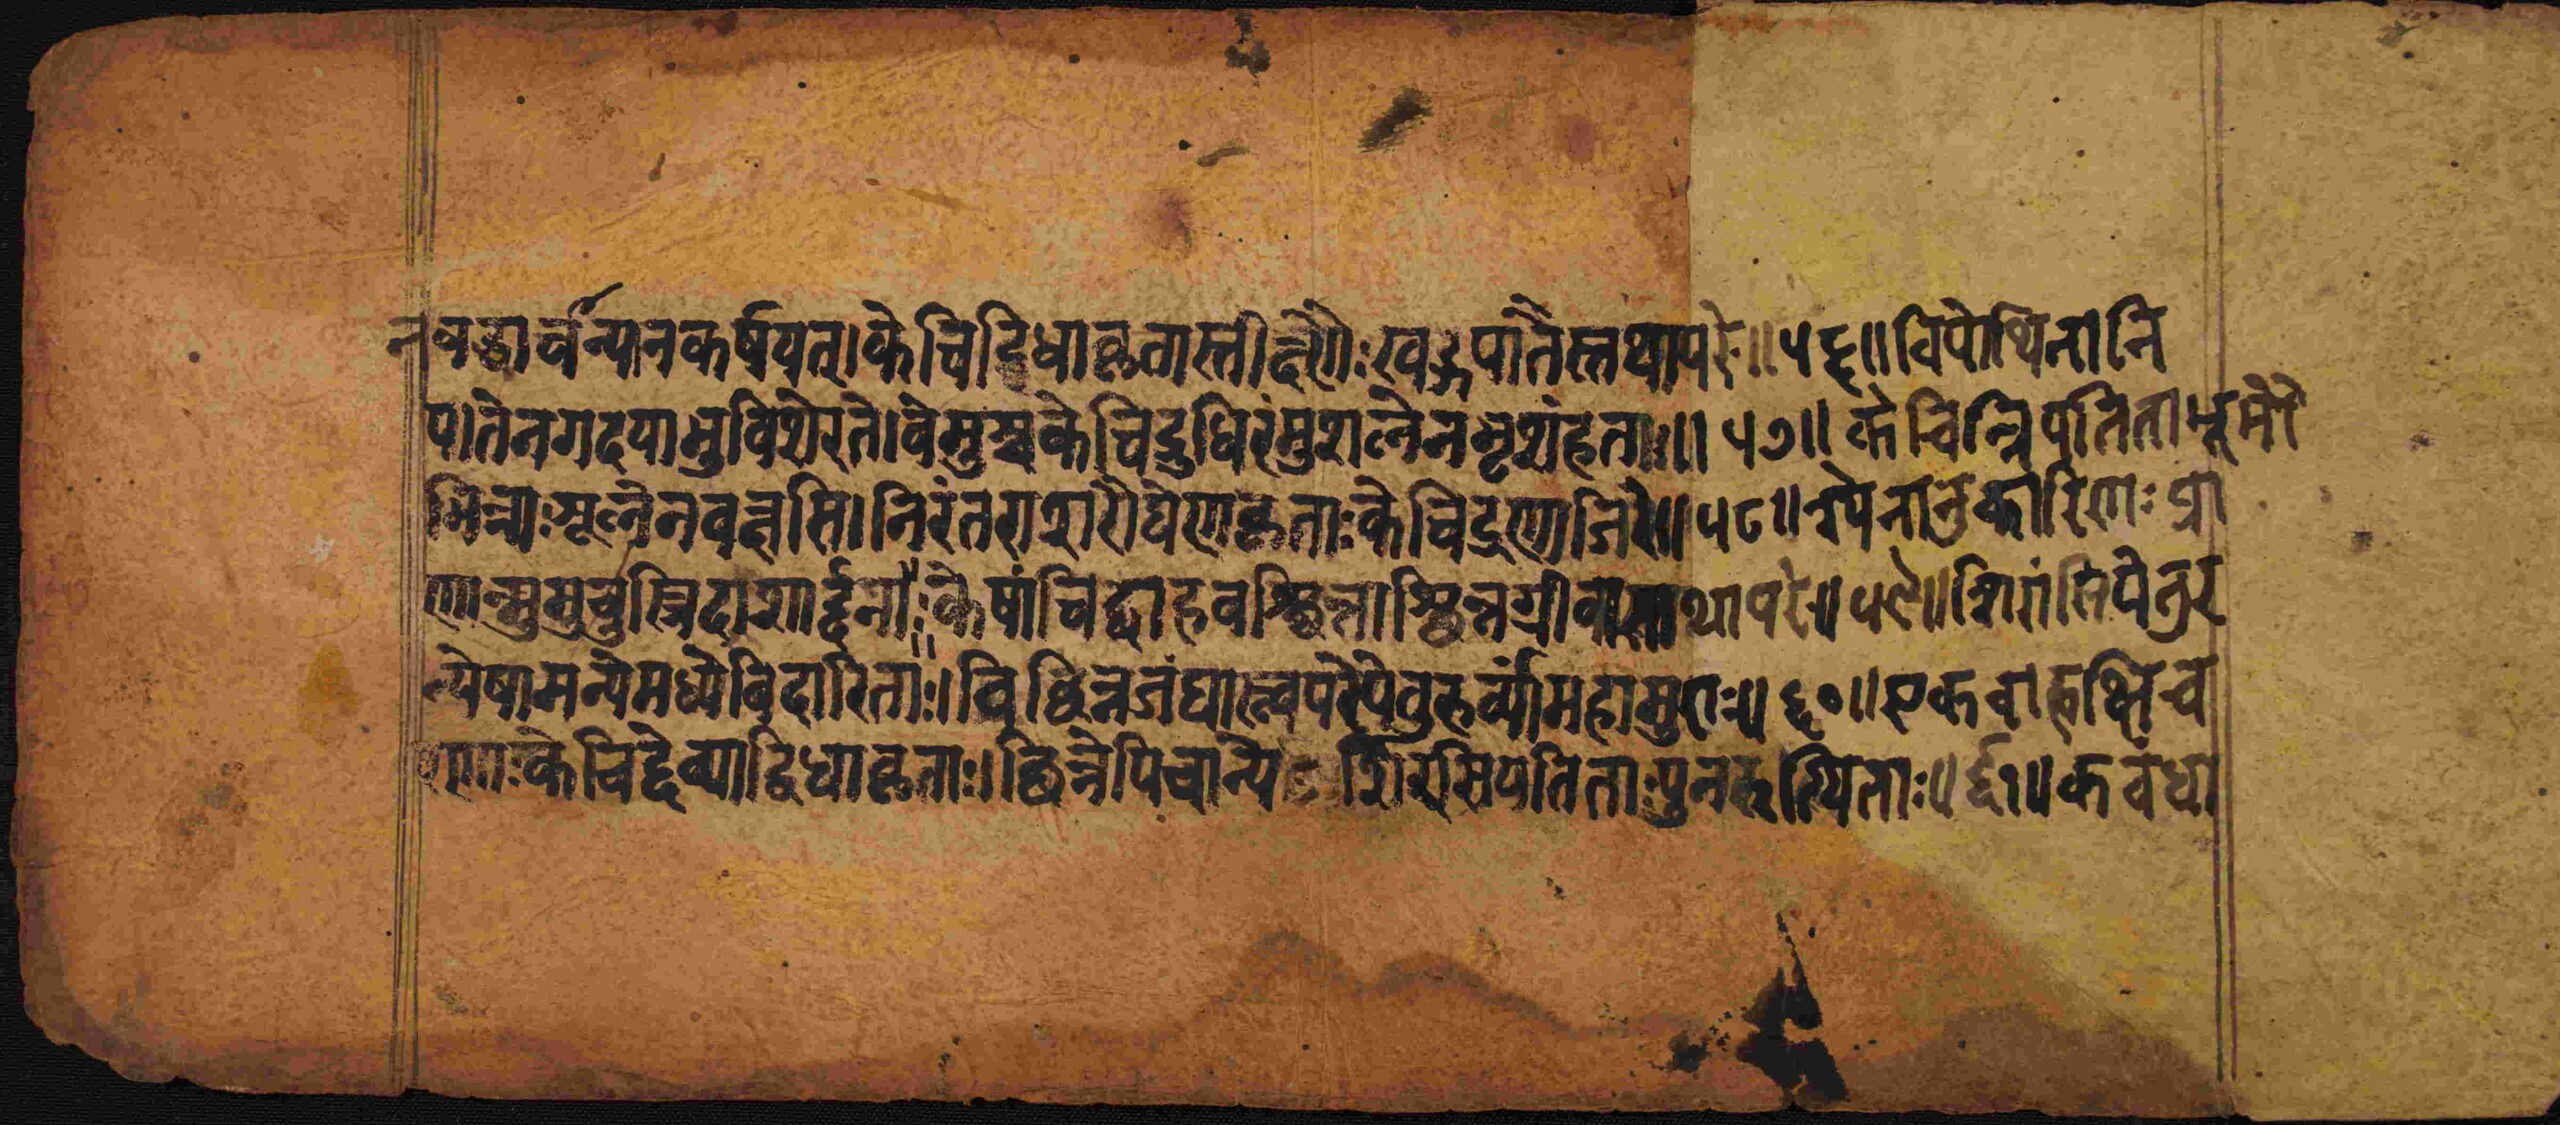 नबद्धा चान्यानकर्षयत्। केचिद्द्विधाकृतास्तीक्ष्णैः खड्गपातैस्तथापरे॥५६॥ विपोथितानि
पातेन गदया भुवि शेरते। वेमुश्च केचिद्रुधिरं मुशलेन भृशं हताः॥५७॥ केचिन्निपतिता भूमौ
भिन्नाः शूलेन वक्षसि। निरंतराशरौघेण कृताः केचिद्रणाजिरे॥५८॥ श्येनानुकारिणः प्रा
णान्मुमुचुस्त्रिदशार्द्दनाः॥ केषांचिद्बाहवश्छिन्नाश्छिन्नग्रीवास्तथापरे॥५९॥ शिरांसि पेतुर
न्येषामन्ये मध्ये विदारिताः। विछिन्नजंघास्त्वपरे पेतुरुर्व्यां महासुराः॥६०॥ एकबाह्वक्षिच
रणाः केचिद्देव्या द्विधाकृताः। छिन्नेपि चान्ये शिरसि पतिताः पुनरुत्थिताः॥६१॥ कबंधा